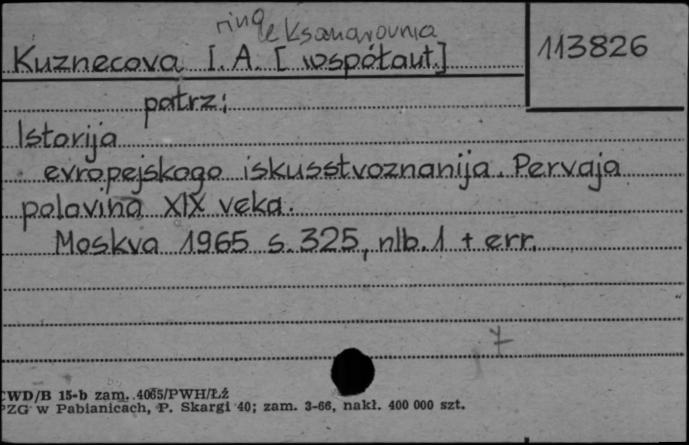 Kuznecova I. A. [współaut.]
113826
patrz:
Istorija
evropejskogo iskusstvoznanija. Pervaja
polovina XIX veka.
Moskva 1965 s. 325, nlb. 1 + err.
7
CWD/B 15-b zam. 4065/PWH/Łź
PZG w Pabianicach, P. Skargi 40; zam. 3-66, nakł. 400 000 szt.